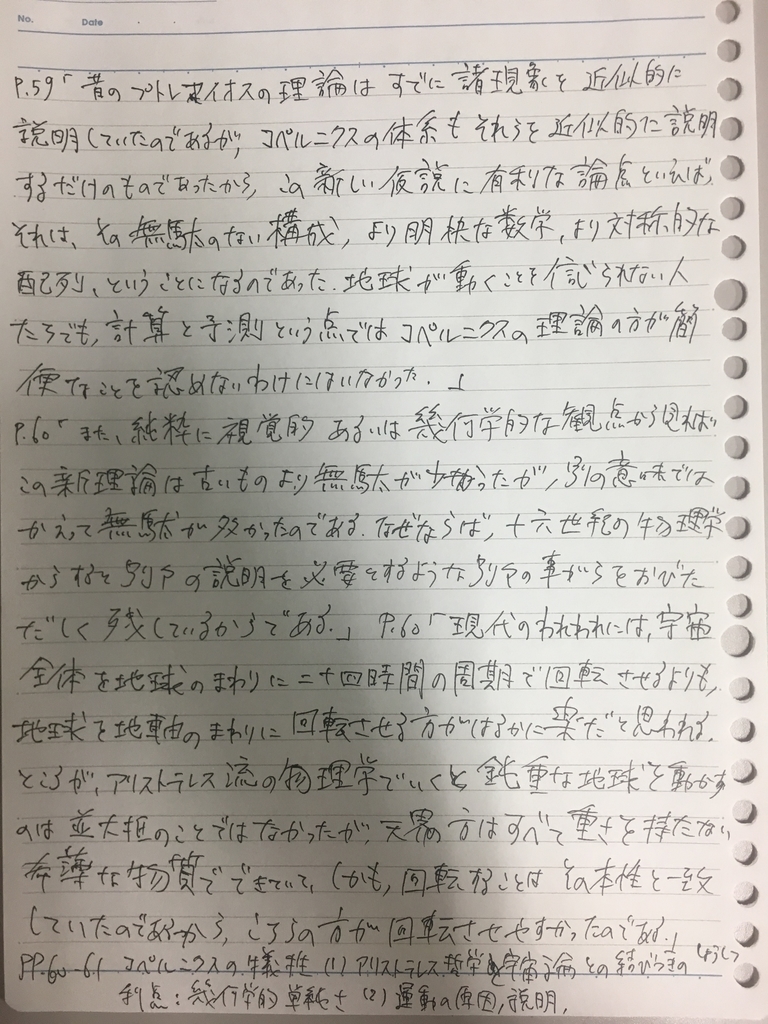 No.　Date
P.59「昔のプトレマイオスの理論はすでに諸現象を近似的に
説明していたのであるが、コペルニクスの体系もそれらを近似的に説明
するだけのものであったから、この新しい仮説に有利な論点といえば、
それは、その無駄のない構成、より明快な数学、より対称的な
配列、ということになるのであった。地球が動くことを信じられない人
たちでも、計算と予測という点ではコペルニクスの理論の方が簡
便なことを認めないわけにはいかなかった。」
P.60「また、純粋に視覚的あるいは幾何学的な観点から見れば
この新理論は古いものより無駄が少なかったが、別の意味では
かえって無駄が多かったのである。なぜならば、十六世紀の物理学
からすると別々の説明を必要とするような別々の事がらをおびた
だしく残しているからである。」P.60「現代のわれわれには、宇宙
全体を地球のまわりに二十四時間の周期で回転させるよりも、
地球を地軸のまわりに回転させる方がはるかに楽だと思われる。
ところが、アリストテレス流の物理学でいくと鈍重な地球を動かす
のは並大抵のことではなかったが、天界の方はすべて重さを持たない
希薄な物質でできていて、しかも、回転することはその本性と一致
していたのであるから、こちらの方が回転させやすかったのである。」
PP.60-61 コペルニクスの犠牲 (1) アリストテレス哲学と宇宙論との結びつきの
利点：幾何学的単純さ (2) 運動の原因、説明、